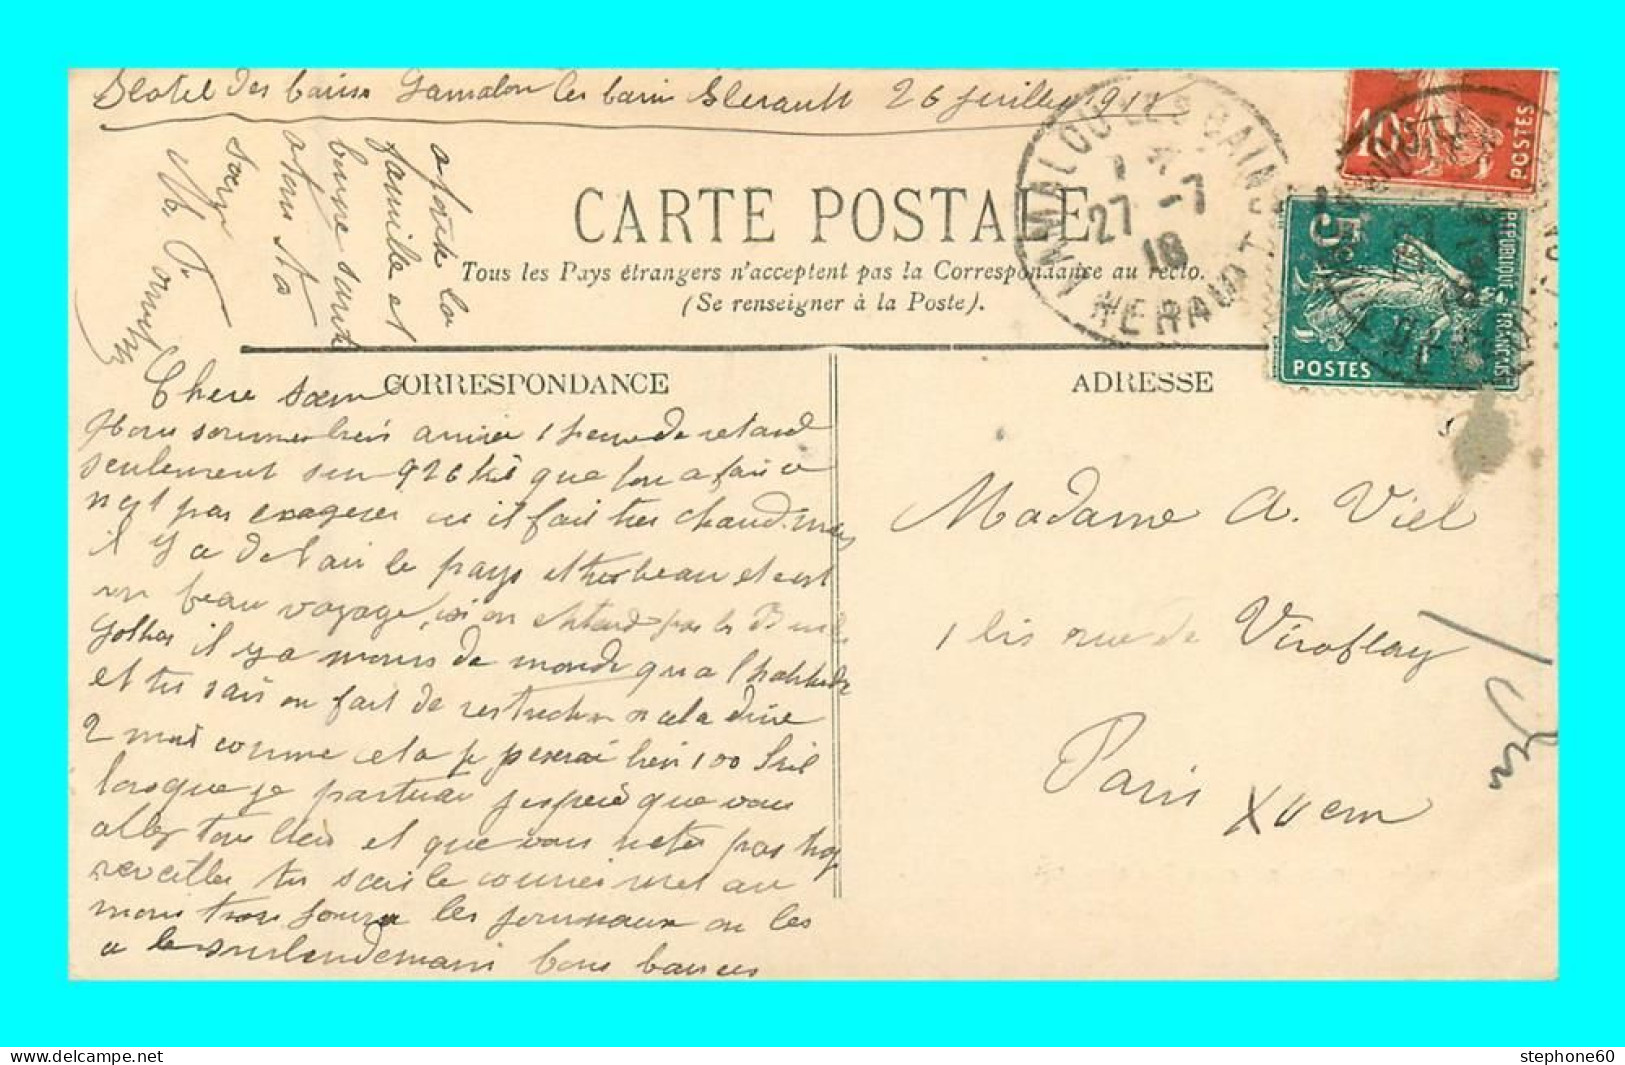 Hotel des bains Lamalou les bains Herault 26 juillet 1918
CARTE POSTALE
Tous les Pays étrangers n'acceptent pas la Correspondance au recto.
(Se renseigner à la Poste).
LAMALOU LES BAINS
27 -7
18
HERAULT
10c
POSTES
5c
REPUBLIQUE FRANÇAISE
POSTES
CORRESPONDANCE
ADRESSE
Chere sœur
Nous sommes bien arrivé 1 heure de retard
seulement sur 926 kil que lon a fait ce
n'est pas exagerer ici il fait tres chaud mais
il y a de l'air le pays et tres beau et c'est
un beau voyage, ici on entend pas les
Gothas il y a moins de monde qu a l habitude
et tu sais on fait de restriction cela dure
2 mois comme cela je peserai bien 100 kil
lorsque je partirai j'espère que vous
allez tous bien et que vous netes pas trop
reveiller tu sais le courrier met au
moins trois jours les journaux on les
a le surlendemain bons baisers
a toute la
famille et
bonne santé
a tous ta
sœur
Madame A. Viel
1 bis rue de Viroflay
Paris XV em
stephone60